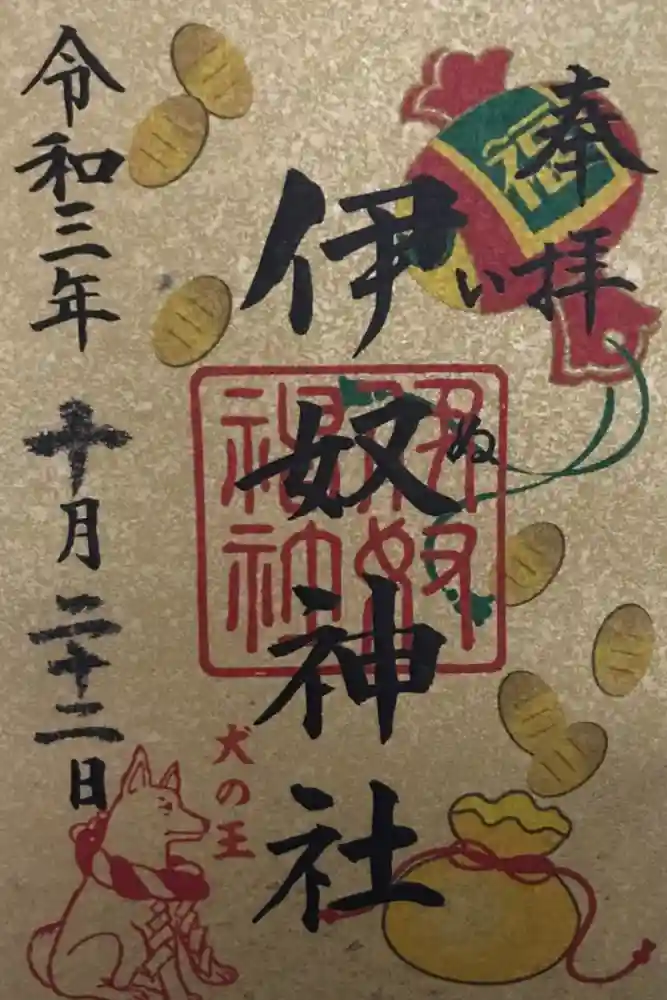 奉拝
福
いぬ
伊奴神社
伊奴神社
犬の王
令和三年 十月二十二日